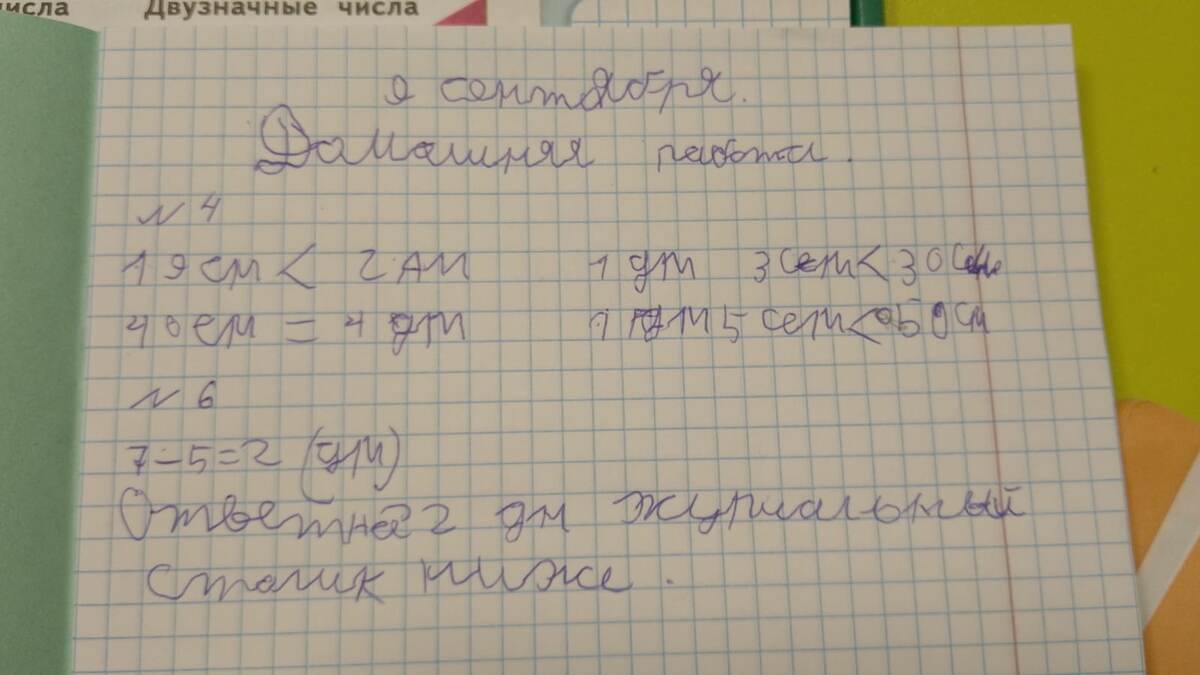 исла Двузначные числа
9 сентября.
Домашняя работа.
№ 4
19 см < 2 дм 1 дм 3 сем < 30
40 см = 4 дм 1 дм 5 сем < 5 дсм
№ 6
7-5=2 (дм)
Ответ: на 2 дм журнальный
столик ниже.